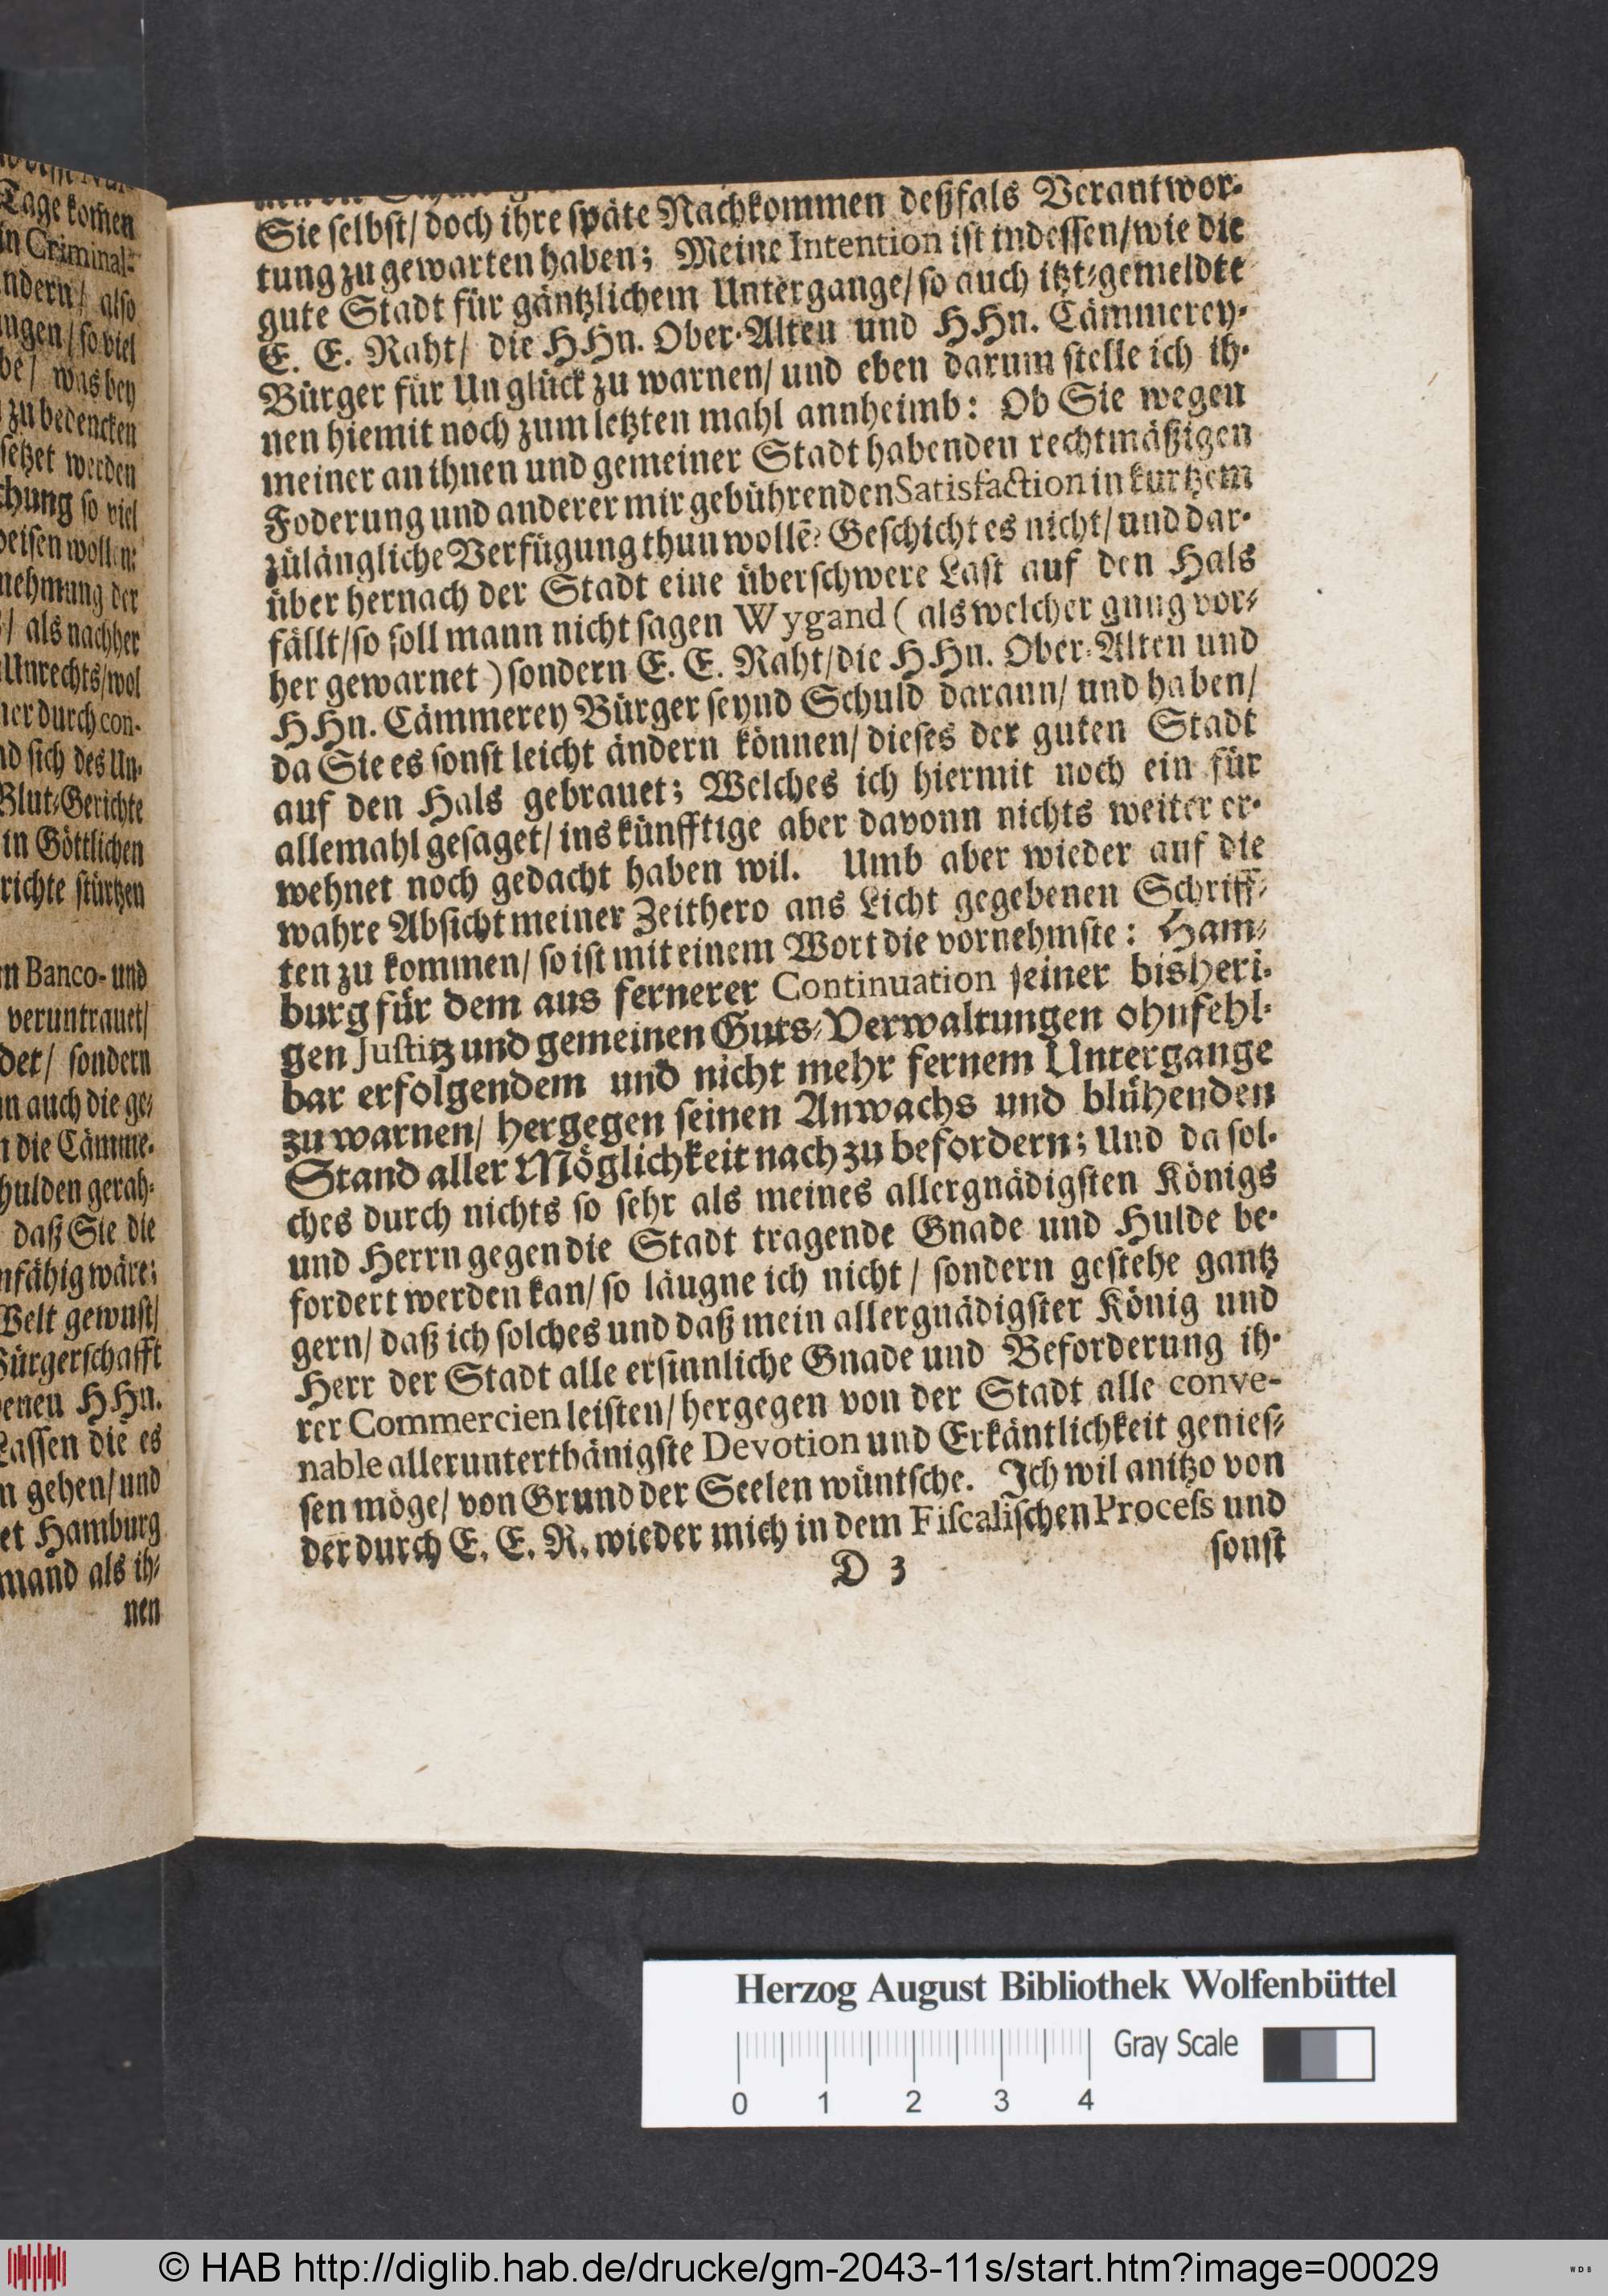 Tage kom̃en
in Criminal-
ndern/ also
ngen/ so viel
be/ was bey
zu bedencken
setzet werden
chung so viel
nehmung der
/ als nachher
Unrechts/ wol
ner durch con-
nd sich des Un-
Blut-Gerichte
in Göttlichen
richte stürtzen
n Banco- und
veruntrauet/
det/ sondern
n auch die ge-
n die Cämme-
hulden gerah-
daß Sie die
nfähig wäre;
Welt gewust/
Bürgerschafft
enen HHn.
Lassen die es
n gehen/ und
et Hamburg
mand als ih-
nen
Sie selbst/ doch ihre späte Nachkommen deßfals Verantwor-
tung zu gewarten haben; Meine Intention ist indessen/ wie die
gute Stadt für gäntzlichem Untergange/ so auch itzt-gemeldte
E. E. Raht/ die HHn. Ober-Alten und HHn. Cämmerey-
Bürger für Unglück zu warnen/ und eben darum stelle ich ih-
nen hiemit noch zum letzten mahl annheimb: Ob Sie wegen
meiner an ihnen und gemeiner Stadt habenden rechtmäßigen
Foderung und anderer mir gebührenden Satisfaction in kurtzem
zülängliche Verfügung thun wollē? Geschicht es nicht/ und dar-
über hernach der Stadt eine überschwere Last auf den Hals
fällt/ so soll mann nicht sagen Wygand ( als welcher gnug vor-
her gewarnet ) sondern E. E. Raht/ die HHn. Ober-Alten und
HHn. Cämmerey Bürger seynd Schuld darann/ und haben/
da Sie es sonst leicht ändern können/ dieses der guten Stadt
auf den Hals gebrauet; Welches ich hiermit noch ein für
allemahl gesaget/ ins künfftige aber davonn nichts weiter er-
wehnet noch gedacht haben wil. Umb aber wieder auf die
wahre Absicht meiner Zeithero ans Licht gegebenen Schriff-
ten zu kommen/ so ist mit einem Wort die vornehmste: Ham-
burg für dem aus fernerer Continuation seiner bisheri-
gen Justitz und gemeinen Guts-Verwaltungen ohnfehl-
bar erfolgendem und nicht mehr fernem Untergange
zu warnen/ hergegen seinen Anwachs und blühenden
Stand aller Möglichkeit nach zu befordern; Und da sol-
ches durch nichts so sehr als meines allergnädigsten Königs
und Herrn gegen die Stadt tragende Gnade und Hulde be-
fordert werden kan/ so läugne ich nicht / sondern gestehe gantz
gern/ daß ich solches und daß mein allergnädigster König und
Herr der Stadt alle ersinnliche Gnade und Beforderung ih-
rer Commercien leisten/ hergegen von der Stadt alle conve-
nable allerunterthänigste Devotion und Erkäntlichkeit genies-
sen möge/ von Grund der Seelen wüntsche. Ich wil anitzo von
der durch E. E. R. wieder mich in dem Fiscalischen Process und
D 3
sonst
Herzog August Bibliothek Wolfenbüttel
Gray Scale
0 1 2 3 4
© HAB http://diglib.hab.de/drucke/gm-2043-11s/start.htm?image=00029